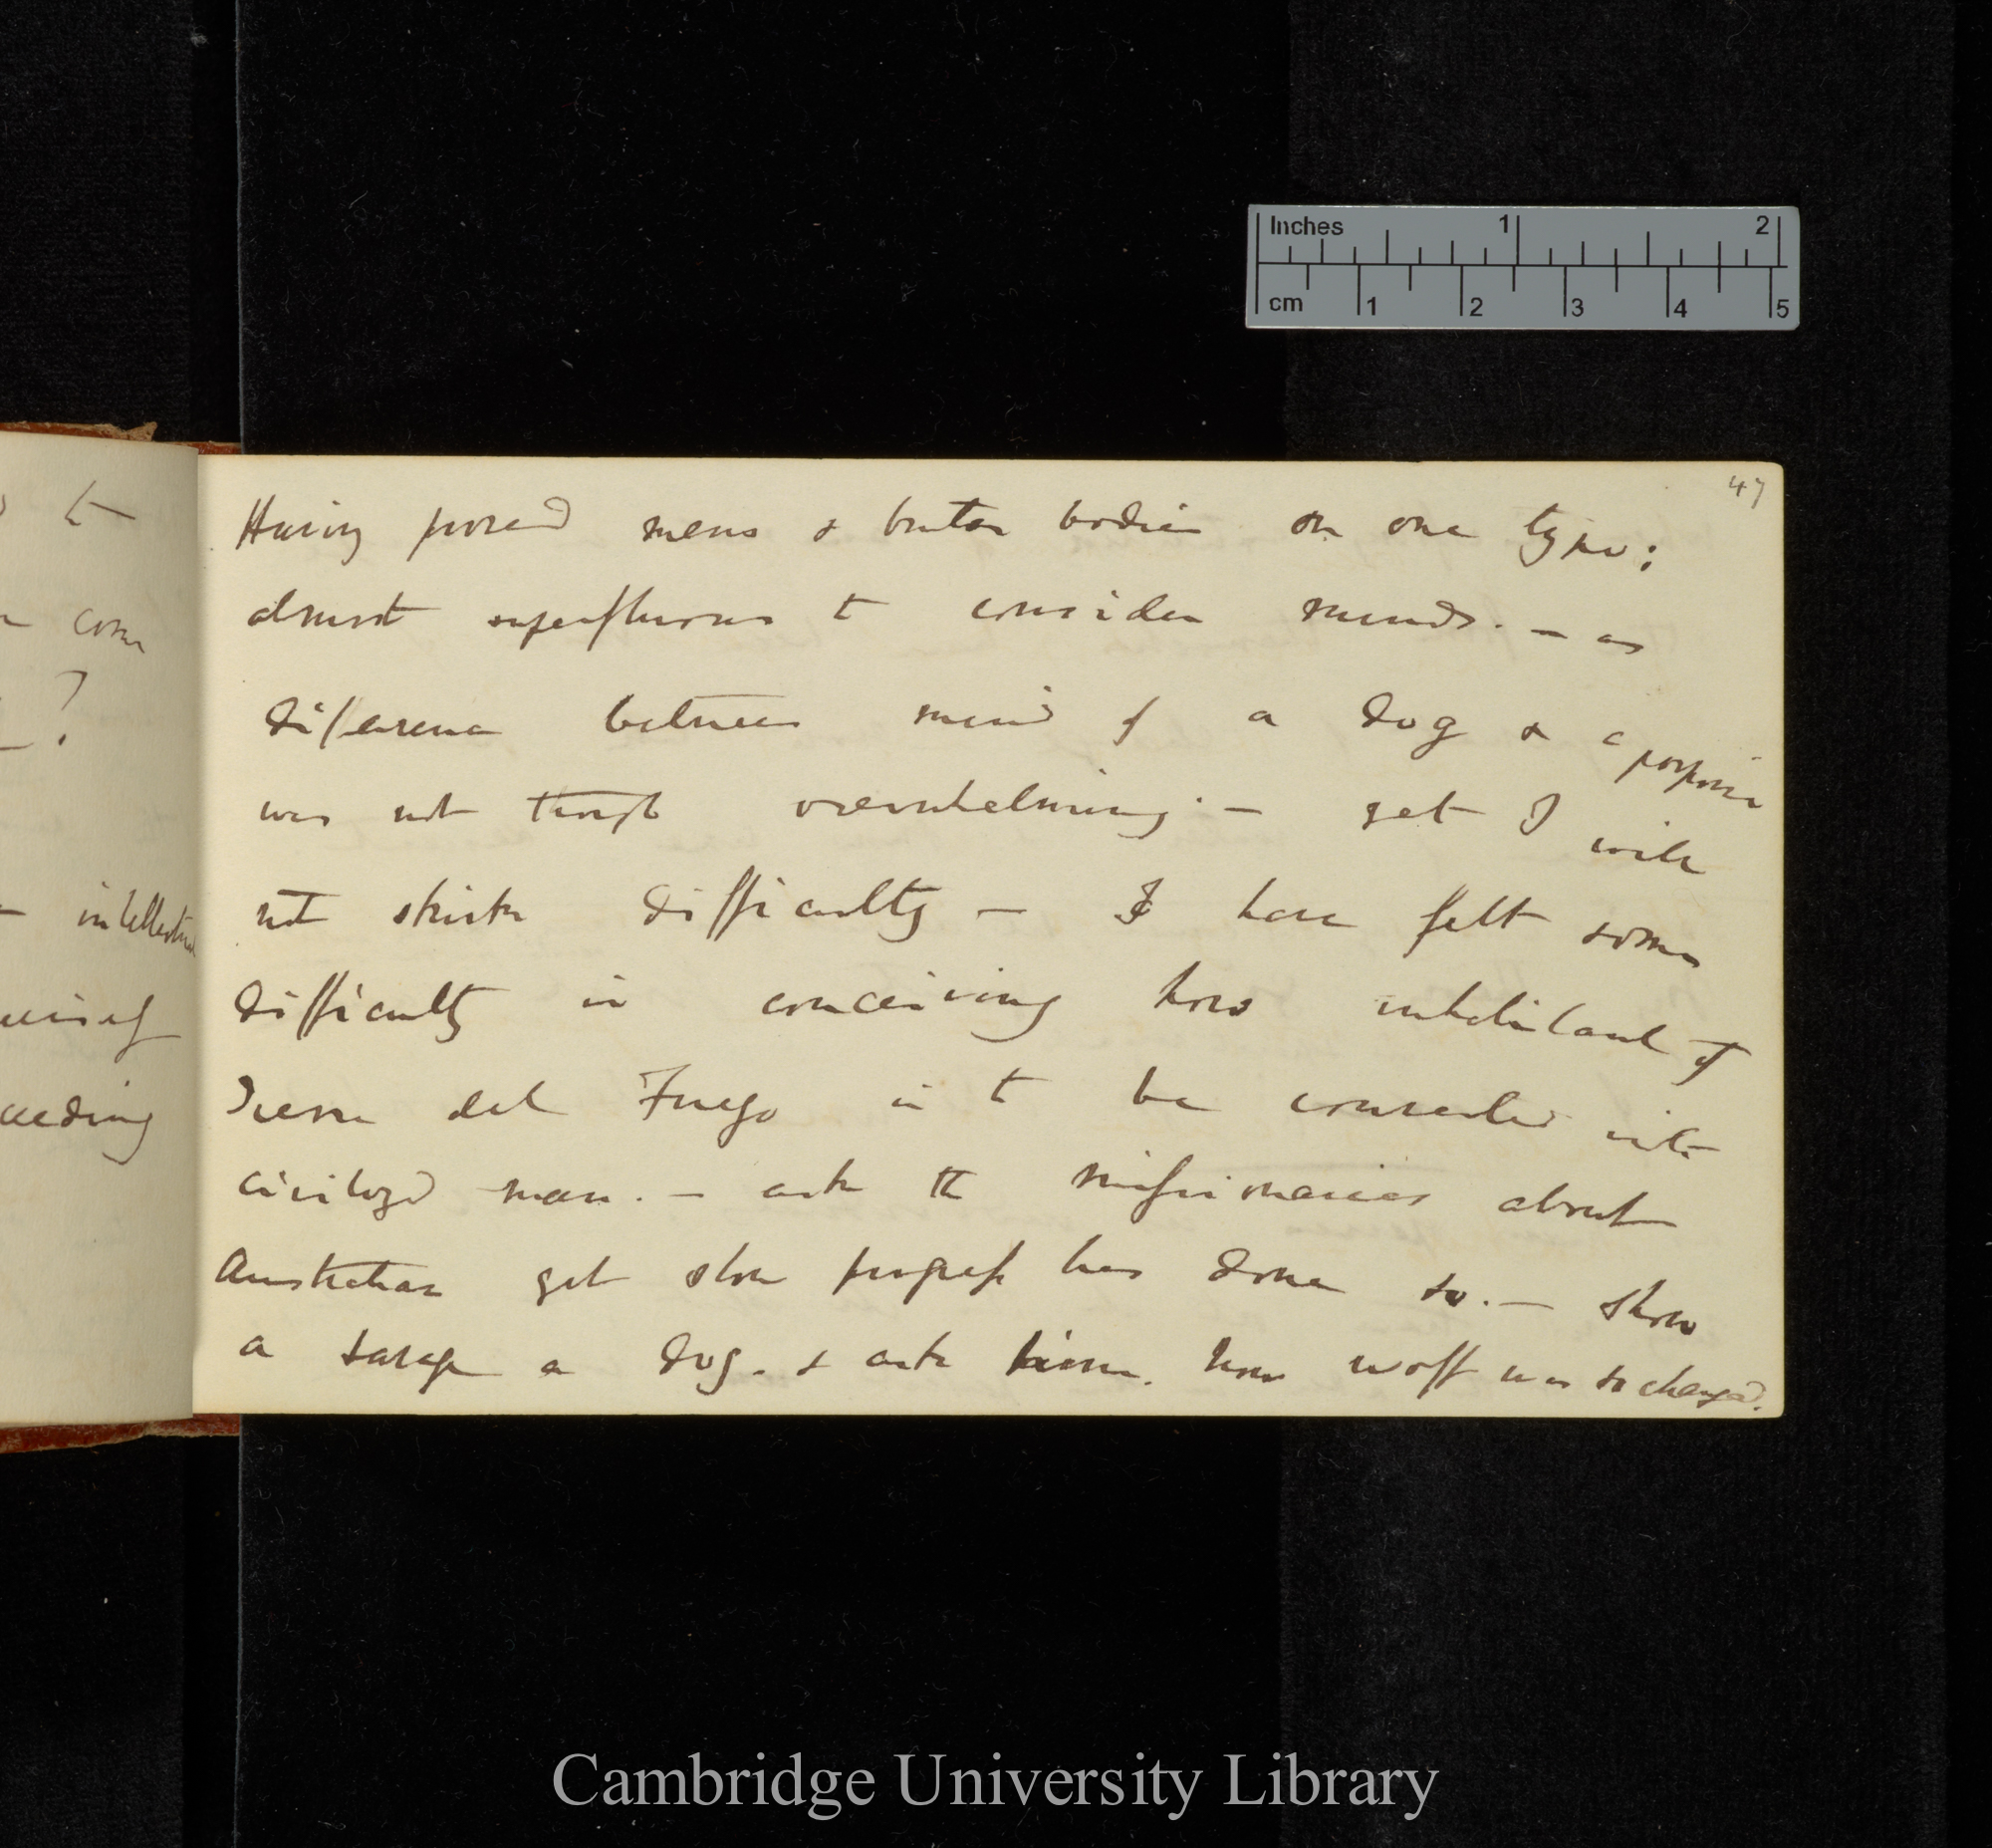 Inches 1 2
cm 1 2 3 4 5
47
Having proved mens & brutes bodies on one type:
almost superfluous to consider minds. — as
difference between mind of a dog & a porpoise
was not thought overwhelming. — yet I will
not shirk difficulty — I have felt some
difficulty in conceiving how inhabitant of
Tierra del Fuego is to be converted into
civilized man. — ask the missionaries about
Australian yet slow progress has done so. — Show
a savage a dog. & ask him. how wolf was so changed.
to
com
?
intellectual
ceeding
Cambridge University Library